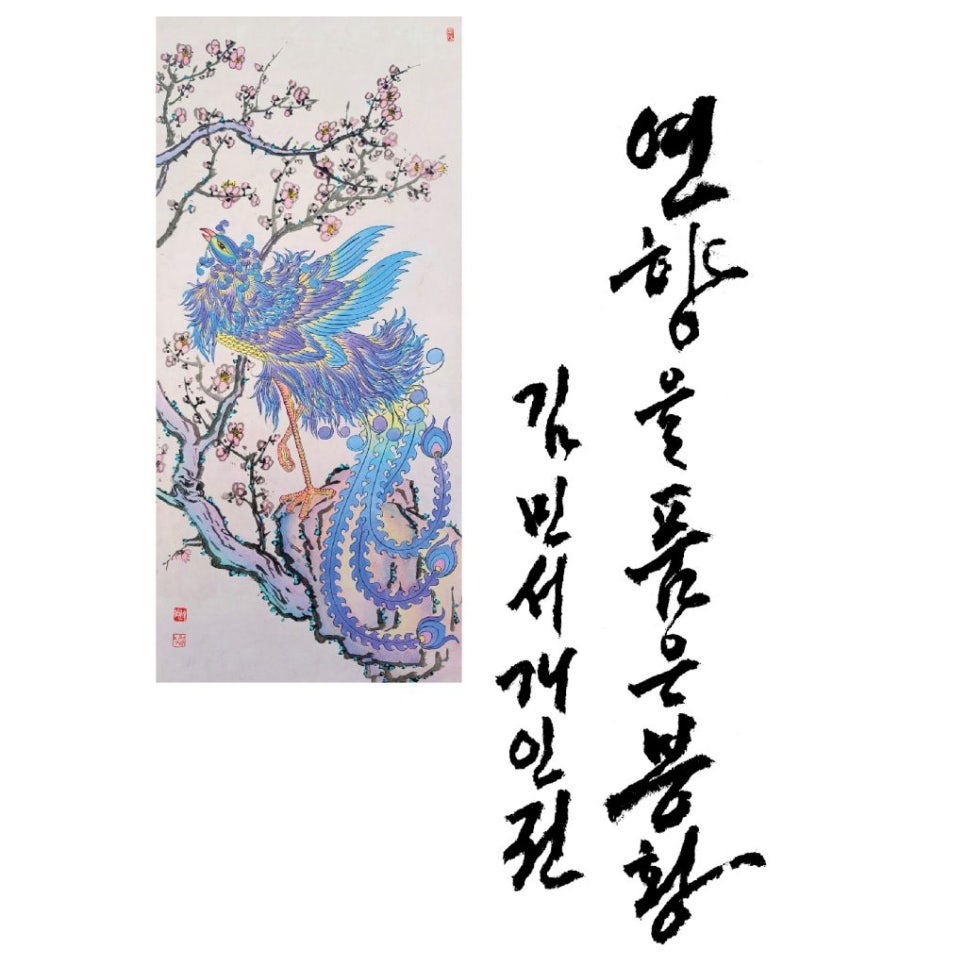 연향을품은봉황
김민서개인전